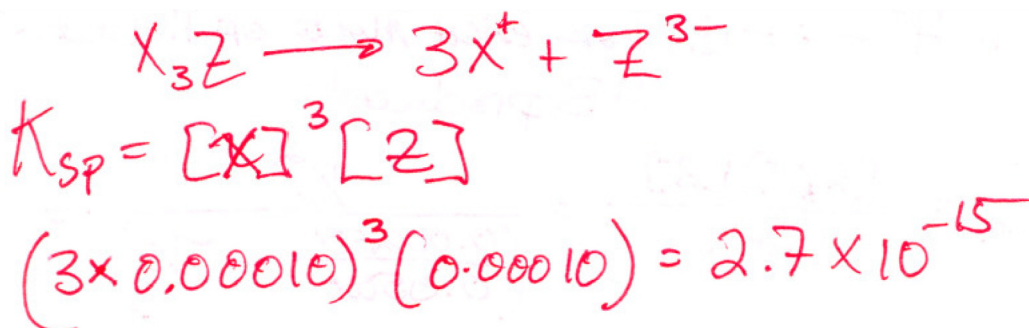 X₃Z → 3X⁺ + Z³⁻
Ksp = [X]³[Z]
(3×0.00010)³(0.00010) = 2.7×10⁻¹⁵